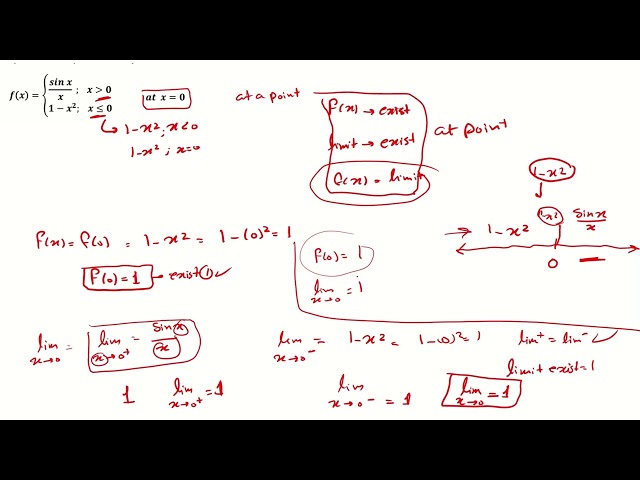 f(x) = { sin x / x ; x > 0
1 − x²; x ≤ 0
at x = 0
↳ 1-x² ; x<0
1-x² ; x=0
at a point
f(x) → exist
limit → exist
f(x) = limit
at point
1-x²
1-x²
→ 1-x²
sinx/x
0
f(x) = f(0) = 1-x² = 1-(0)² = 1
f(0) = 1 → exist ① ✓
f(0) = 1
lim x→0 = 1
lim x→0 = lim x→0⁺ = sinx/x
lim x→0⁻ = 1-x² = 1-(0)² = 1
lim⁺ = lim⁻ ✓
limit exist = 1
1
lim x→0⁺ = 1
lim x→0⁻ = 1
lim x→0 = 1